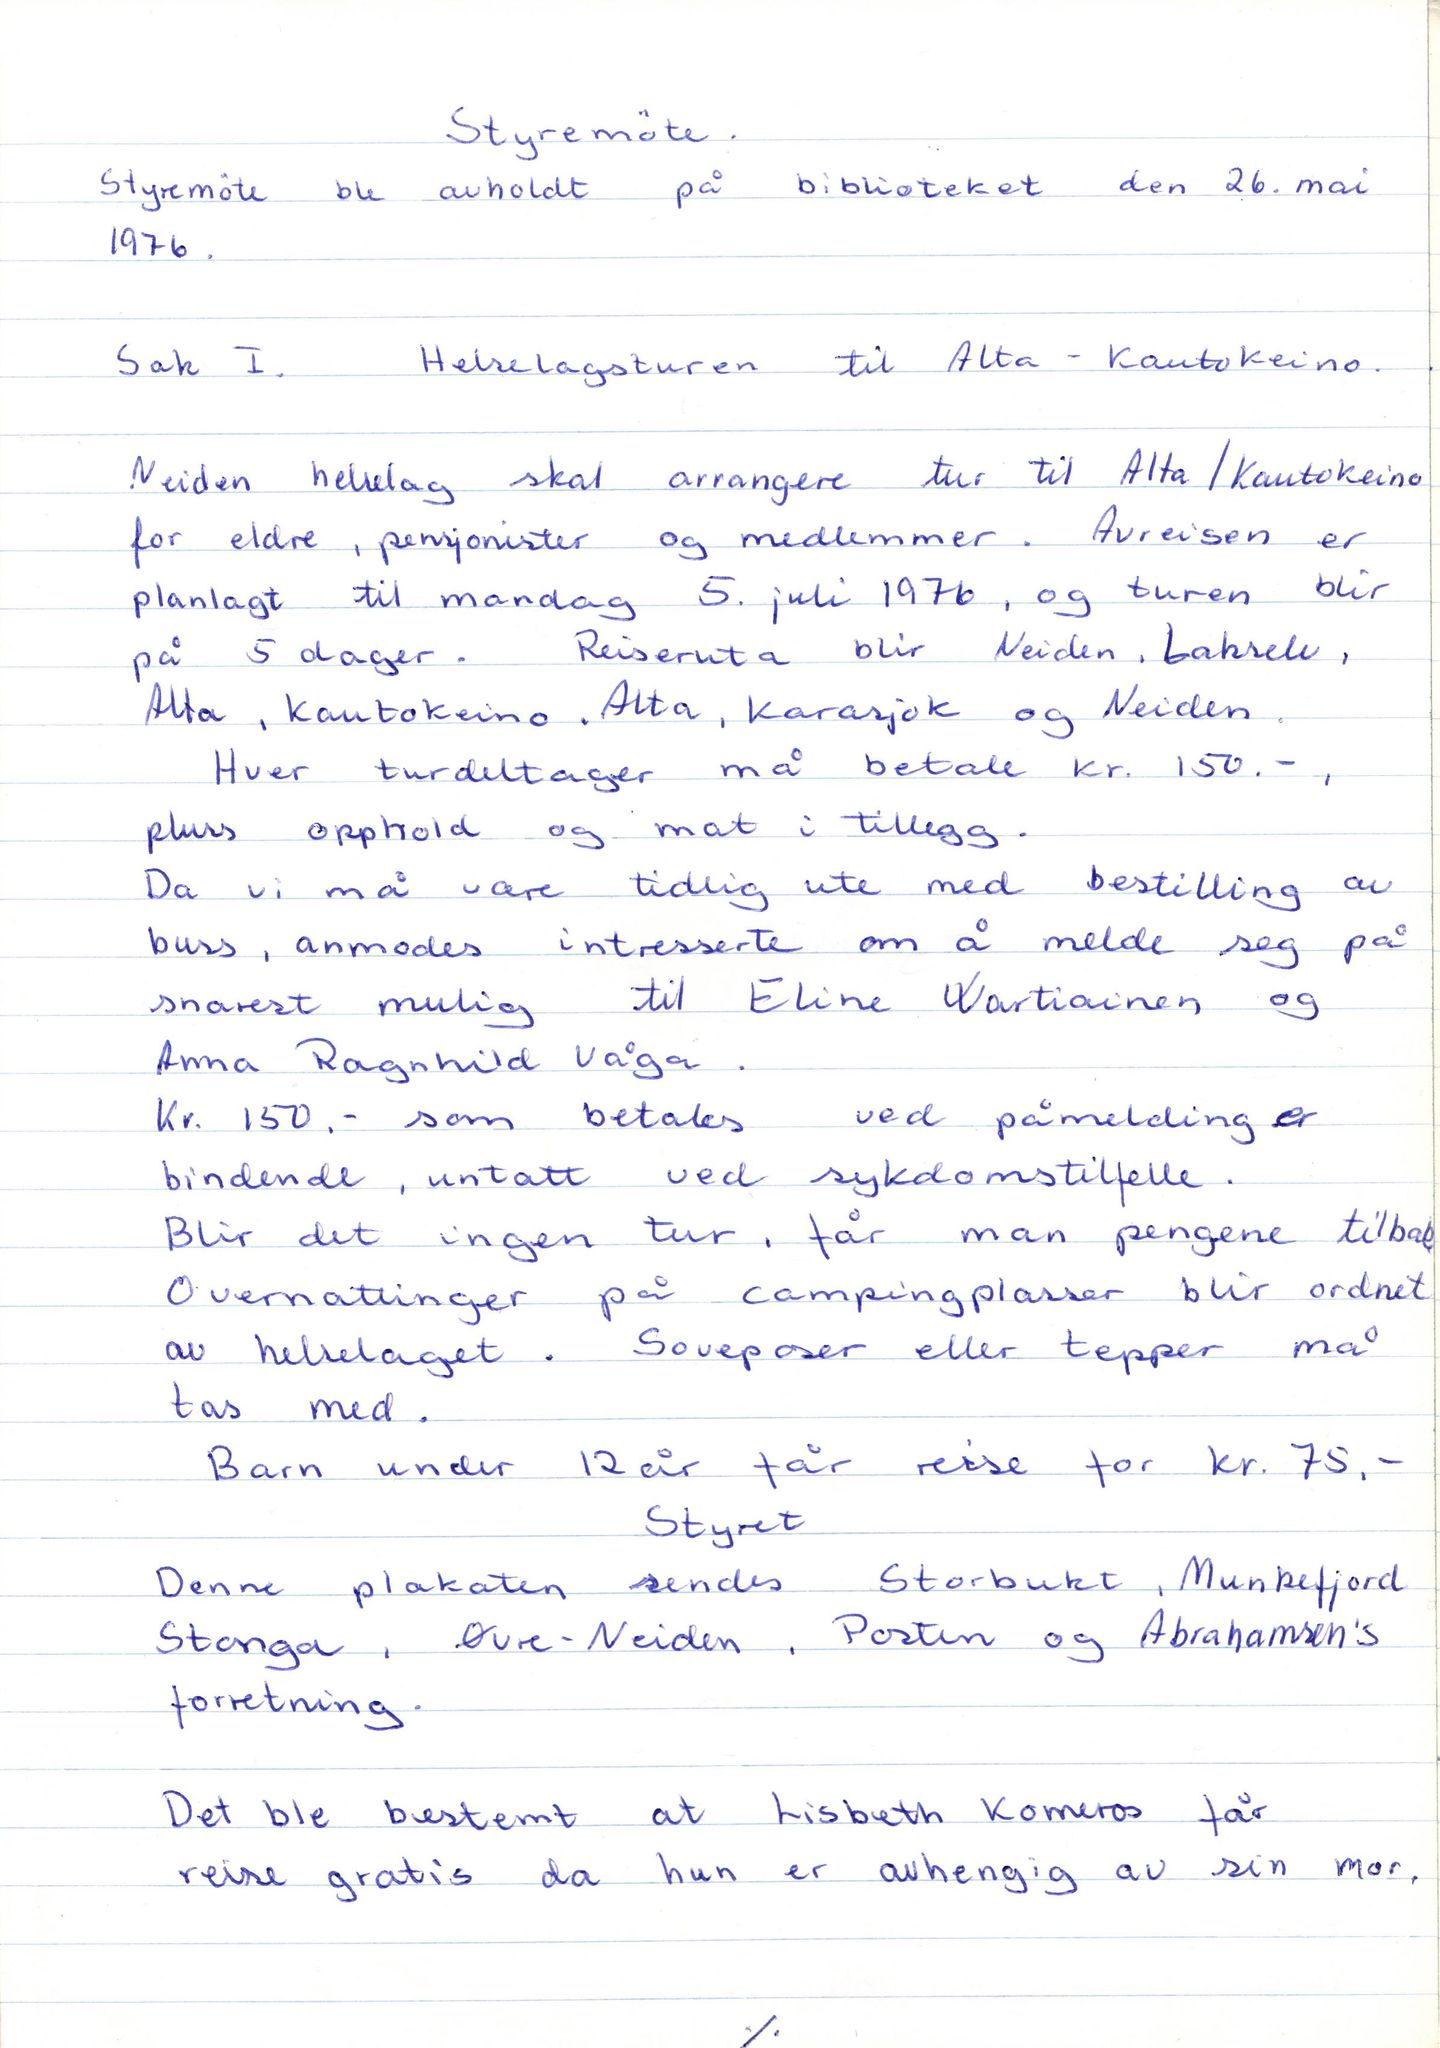 Styremöte.
Styremöte ble avholdt på biblioteket den 26. mai
1976.
Sak I. Helselagsturen til Alta - Kautokeino.
Neiden helselag skal arrangere tur til Alta/Kautokeino
for eldre, pensjonister og medlemmer. Avreisen er
planlagt til mandag 5. juli 1976, og turen blir
på 5 dager. Reiseruta blir Neiden, Lakselv,
Alta, Kautokeino, Alta, Karasjok og Neiden.
Hver turdeltager må betale kr. 150.-,
pluss opphold og mat i tillegg.
Da vi må være tidlig ute med bestilling av
buss, anmodes intresserte om å melde seg på
snarest mulig til Eline Wartiainen og
Anna Ragnhild Våga.
Kr. 150,- som betales ved påmelding er
bindende, untatt ved sykdomstilfelle.
Blir det ingen tur, får man pengene tilbak
Overnattinger på campingplasser blir ordnet
av helselaget. Soveposer eller tepper må
tas med.
Barn under 12 år får reise for kr. 75,-
Styret
Denne plakaten sendes Storbukt, Munkefjord
Stonga, Øvre-Neiden, Posten og Abrahamsen's
forretning.
Det ble bestemt at Lisbeth Komeros får
reise gratis da hun er avhengig av sin mor.
./.